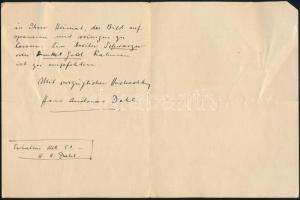 in Ihrer Heimat, das Bild auf
spannen und reinigen zu
lassen. Ein breiter Schwarzer
oder Dunkel Gold Rahmen
ist zu empfehlen
Mit vorzüglicher Hochachtung
Hans Andreas Dahl
Erhalten
H. A. Dahl